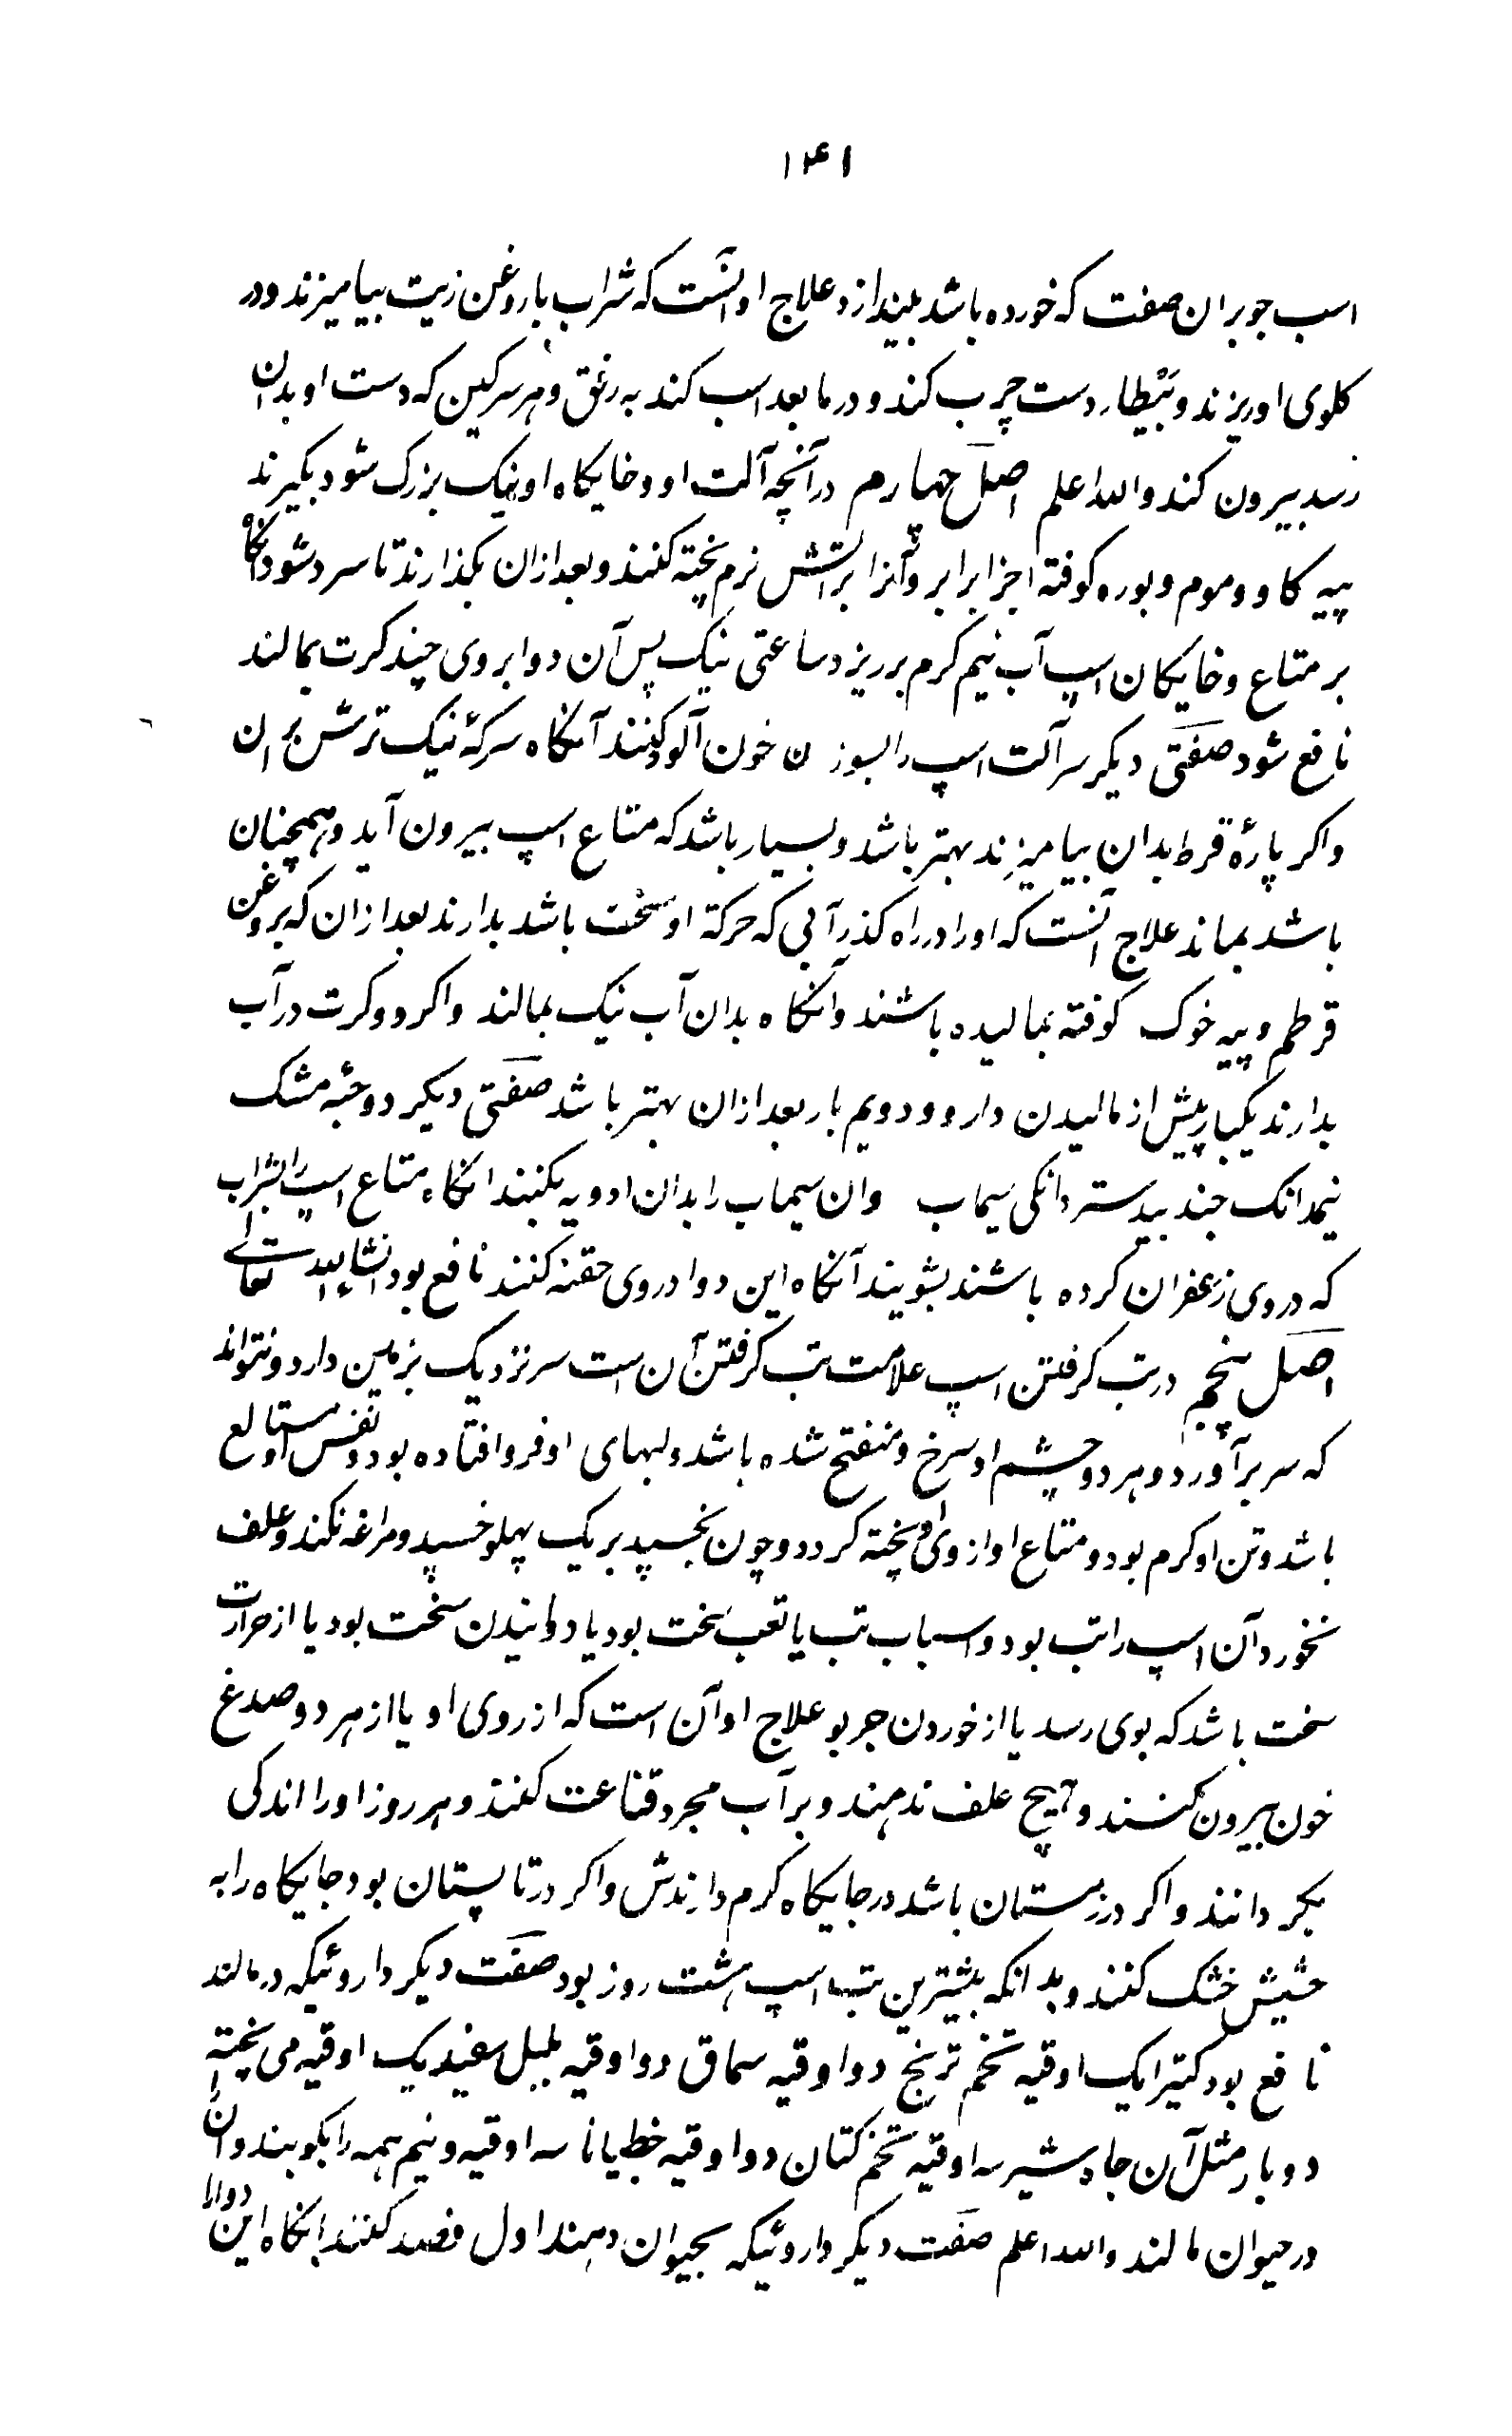 ۱۴۱
اسب جو بران صفت که خورده باشد بیندازد علاج او آنست که شراب با روغن زیت بیامیزند و در
کلوی او ریزند و بَیْطار دست چرب کند و در ما بعد اسب کند به رفق و هر سرکین که دست او بدان
رسد بیرون کند والله اعلم اصل چهارم در آنچه آلت او و خایکاه او نیک بزرک شود بکیرند
پیه کاو و موم و بوره کوفته اجزا برابر و آنرا بر آتش نرم پخته کنند و بعد ازان بکذارند تا سرد شود آنکاه
بر متاع و خایکان اسپ آب نیم کرم بر ریزد ساعتی نیک پس آن دوا بروی چند کرت بمالند
نافع شود صفتی دیکر سر آلت اسپ را بسوزن خون آلود کنند آنکاه سرکهٔ نیک ترش بران
واکر پارهٔ قرط بدان بیامیزند بهتر باشد و بسیار باشد که متاع اسپ بیرون آید و همچنان
باشد بماند علاج آنست که او را در راه کذر آبی که حرکة او سخت باشد بدارند بعد ازان که بروغن
قرطم و پیه خوک کوفته بمالیده باشند و آنکاه بدان آب نیک بمالند واکر دو کرت در آب
بدارند یکبار پیش از مالیدن دارو و دویم بار بعد ازان بهتر باشد صفتی دیکر دو حبّه مشک
نیمدانک جند بیدستر دانکی سیماب وان سیماب را بدان ادویه بکنند انکاه متاع اسپ را بشراب
که دروی زعفران کرده باشند بشویند آنکاه این دوا دروی حقنه کنند نافع بود انشاءالله تعالی
اصل پنجم در تب کرفتن اسپ علامت تب کرفتن آن است سر نزدیک بزمین دارد و نتواند
که سر برآورد و هر دو چشم او سرخ و منفتح شده باشد و لبهای او فرو افتاده بود و نفس او متتابع
باشد و تن او کرم بود و متاع او از وی آویخته کردد و چون بخسپد بر یک پهلو خسپد و مراغه نکند و علف
نخورد آن اسپ را تب بود و اسباب تب یا تعب سخت بود یا دوانیدن سخت بود یا از حرارت
سخت باشد که بوی رسد یا از خوردن جو بو علاج او آن است که از روی او یا از هر دو صدغ
خون بیرون کنند و هیچ علف ندهند و بر آب مجرد قناعت کنند و هر روز او را اندکی
بکردانند واکر در زمستان باشد در جایکاه کرم دارندش واکر در تابستان بود جایکاه را به
حشیش خشک کنند و بدانکه بیشترین تب اسپ هشت روز بود صفت دیکر داروئیکه در مالند
نافع بود کتیرا یک اوقیه تخم ترنج دو اوقیه سماق دو اوقیه پلپل سفید یک اوقیه می پخته
دو بار مثل آن جاوشیر سه اوقیه تخم کتان دو اوقیه خطیانا سه اوقیه و نیم همه را بکوبند و آن را
در حیوان مالند والله اعلم صفت دیکر داروئیکه بحیوان دهند اول فصد کنند آنکاه این دوا را